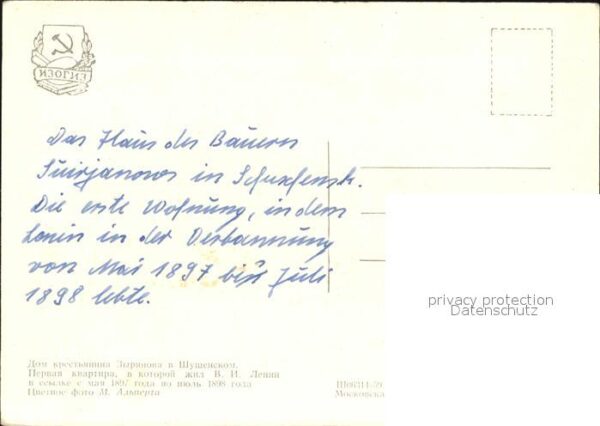 ИЗОГИЗ
Das Haus des Bauern
in
Die erste Wohnung, in dem
Lenin in der Verbannung
von Mai 1897 bis Juli
1898 lebte.
privacy protection
Datenschutz
Дом крестьянина Зырянова в Шушенском.
Первая квартира, в которой жил В. И. Ленин
в ссылке с мая 1897 года по июль 1898 года
Цветное фото М. Альперта